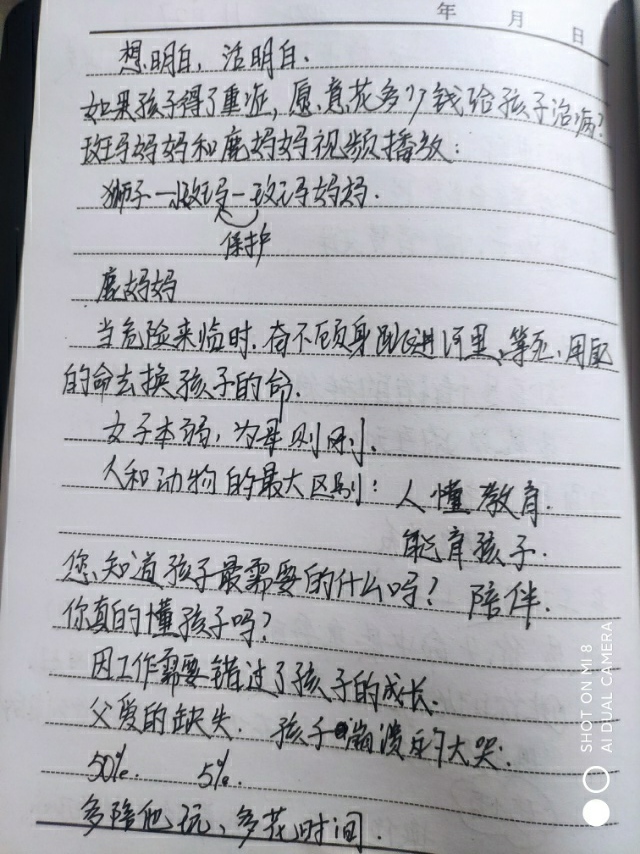 年 月 日
想明白，活明白.
如果孩子得了重症，愿意花多少钱给孩子治病？
斑马妈妈和鹿妈妈视频播放：
狮子—小斑马—斑马妈妈.
保护
鹿妈妈
当危险来临时.奋不顾身跳进河里、等死.用自己
的命去换孩子的命.
女子本弱，为母则刚.
人和动物的最大区别：人懂教育.
能育孩子.
您知道孩子最需要的什么吗？陪伴.
你真的懂孩子吗？
因工作需要错过了孩子的成长.
父爱的缺失. 孩子崩溃的大哭.
50%. 5%.
多陪他玩、多花时间.
SHOT ON MI 8
AI DUAL CAMERA